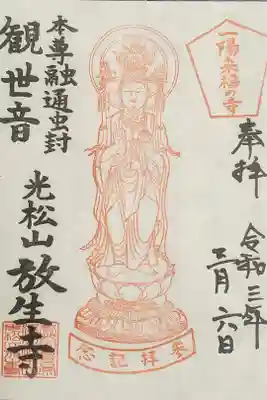 一陽来福の寺
奉拝
令和三年
二月六日
本尊融通虫封
観世音
光松山
放生寺
参拝記念